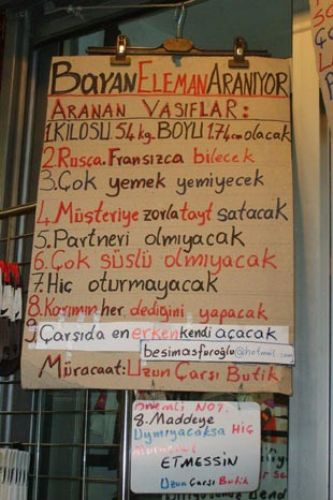 Bayan Eleman Aranıyor
Aranan Vasıflar:
1. Kilosu 54 kg. Boyu 1.74 cm olacak
2. Rusça, Fransızca bilecek
3. Çok yemek yemiyecek
4. Müşteriye zorla tayt satacak
5. Partneri olmıyacak
6. Çok süslü olmıyacak
7. Hiç oturmayacak
8. Karımın her dediğini yapacak
9 Çarşıda en erken kendi açacak
besimasfuroğlu@hotmail.com
Müracaat: Uzun Çarşı Butik
önemli NOT.
8. Maddeye
Uymıyacaksa Hiç
ETMESSİN
Uzun Çarşı Butik